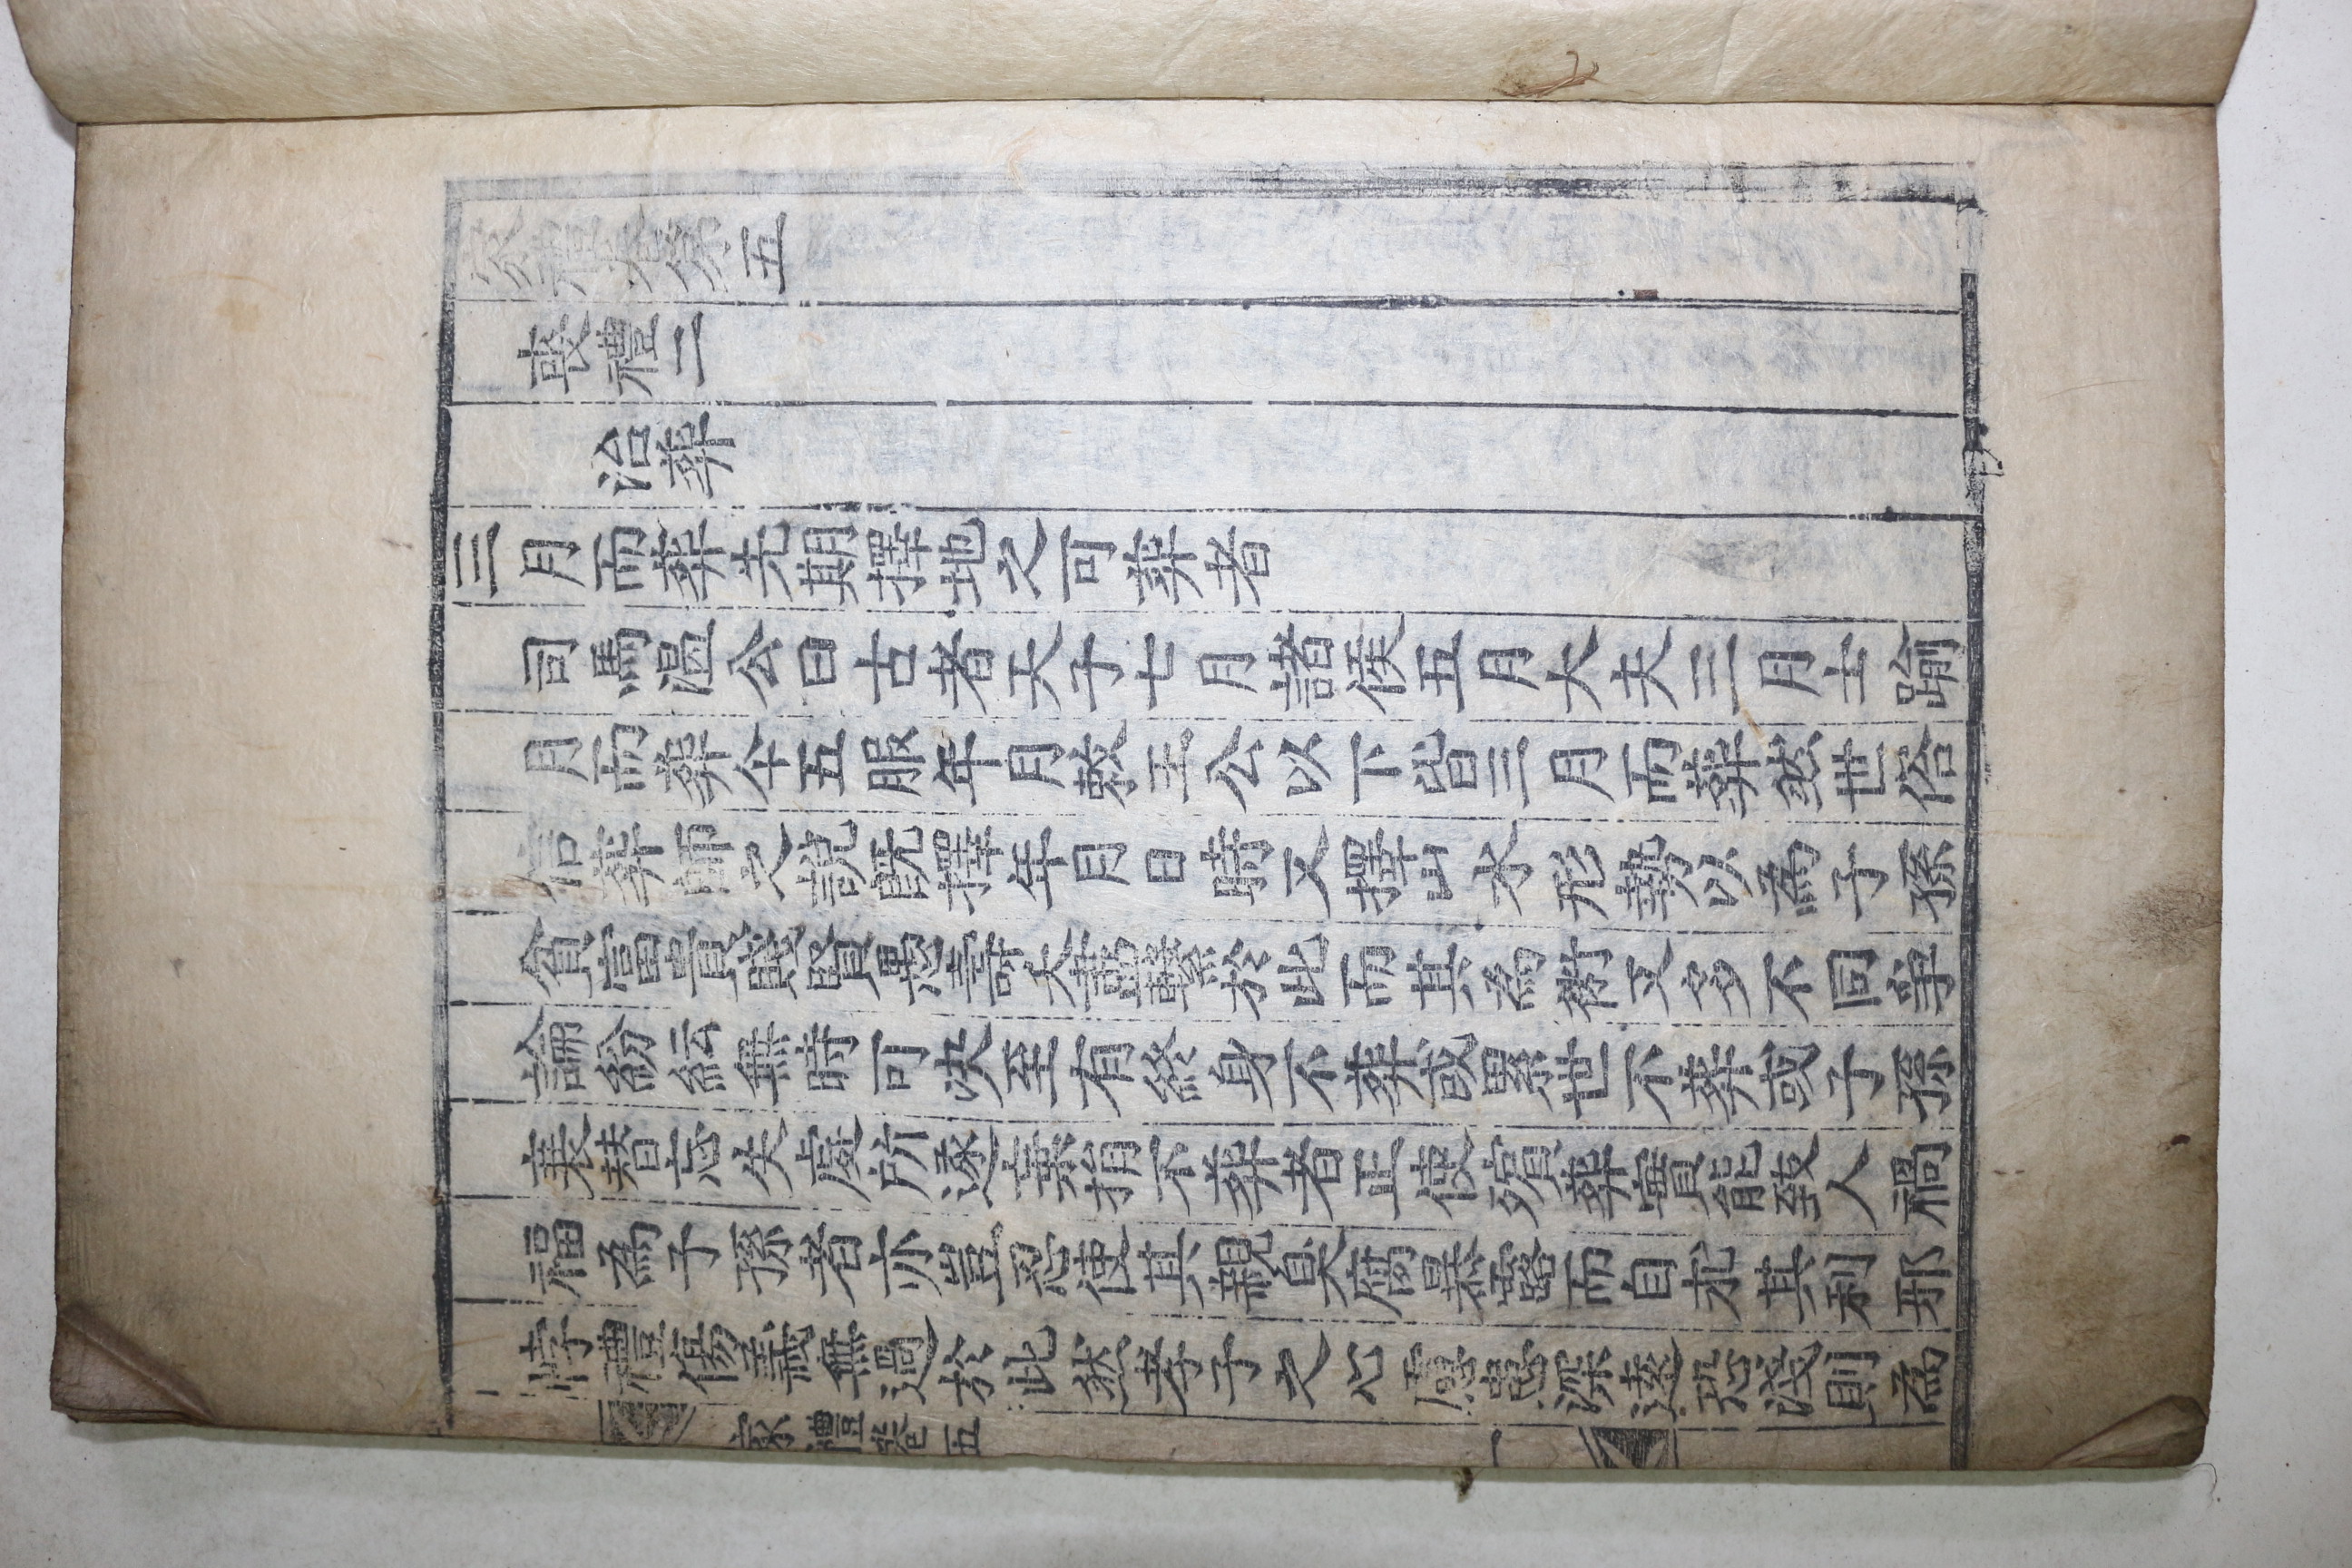 家禮卷第五
喪禮二
治葬
三月而葬先期擇地之可葬者
司馬溫公曰古者天子七月諸侯五月大夫三月士踰
月而葬今五服年月敕王公以下皆三月而葬然世俗
信葬師之說旣擇年月日時又擇山水形勢以爲子孫
貧富貴賤賢愚壽夭盡繫於此而其爲術又多不同爭
論紛紜無時可决至有終身不葬或累世不葬或子孫
衰替忘失處所遂棄捐不葬者正使殯葬實能致人禍
福爲子孫者亦豈忍使其親臭腐暴露而自求其利邪
悖禮傷義無過於此然孝子之心慮患深遠恐淺則爲
家禮卷五
一